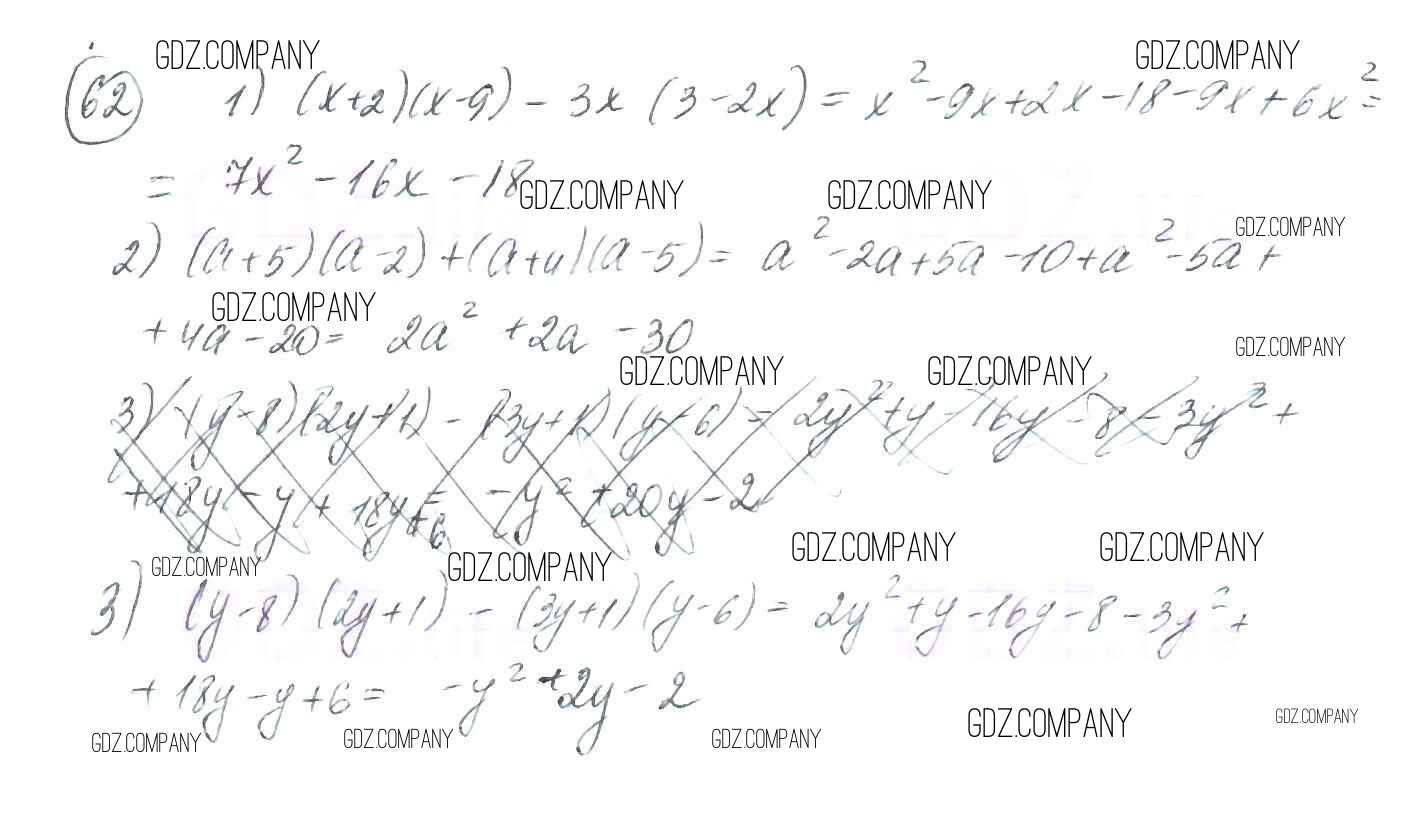 GDZ.COMPANY GDZ.COMPANY
62 1) (x+2)(x-9) - 3x (3-2x) = x²-9x+2x-18-9x+6x²=
= 7x² -16x -18
GDZ.COMPANY GDZ.COMPANY
GDZ.COMPANY
2) (a+5)(a-2)+(a+4)(a-5)= a²-2a+5a-10+a²-5a+
GDZ.COMPANY
+4a-20= 2a² +2a -30
GDZ.COMPANY
GDZ.COMPANY GDZ.COMPANY
3) (y-8)(2y+1) - (3y+1)(y-6) = 2y²+y-16y-8-3y²+
+18y-y+18y+6= -y²+20y-2
GDZ.COMPANY GDZ.COMPANY
GDZ.COMPANY GDZ.COMPANY
3) (y-8)(2y+1) - (3y+1)(y-6)= 2y²+y-16y-8-3y²+
+18y-y+6= -y²+2y-2
GDZ.COMPANY GDZ.COMPANY
GDZ.COMPANY GDZ.COMPANY GDZ.COMPANY